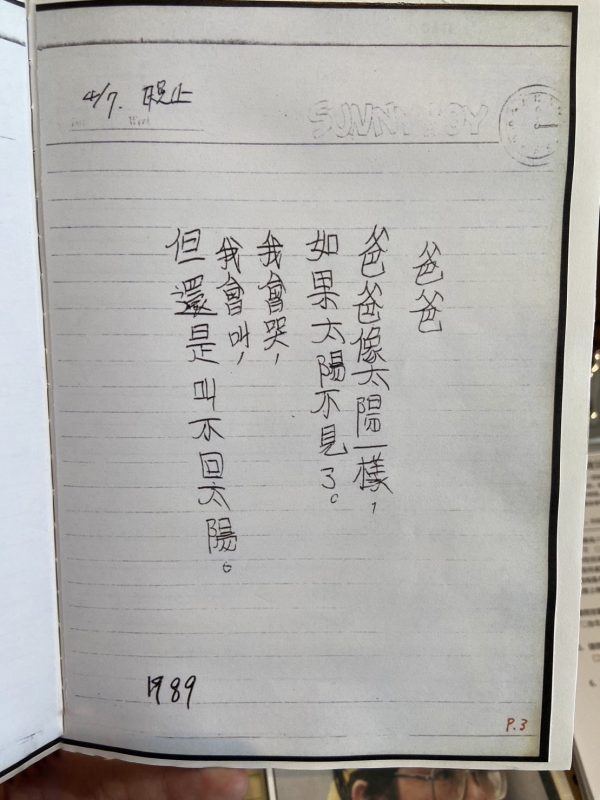 4/7. 晚上
SUNNY BOY
爸爸
爸爸像太陽一樣，
如果太陽不見了。
我會哭，
我會叫，
但還是叫不回太陽。
1989
P.3